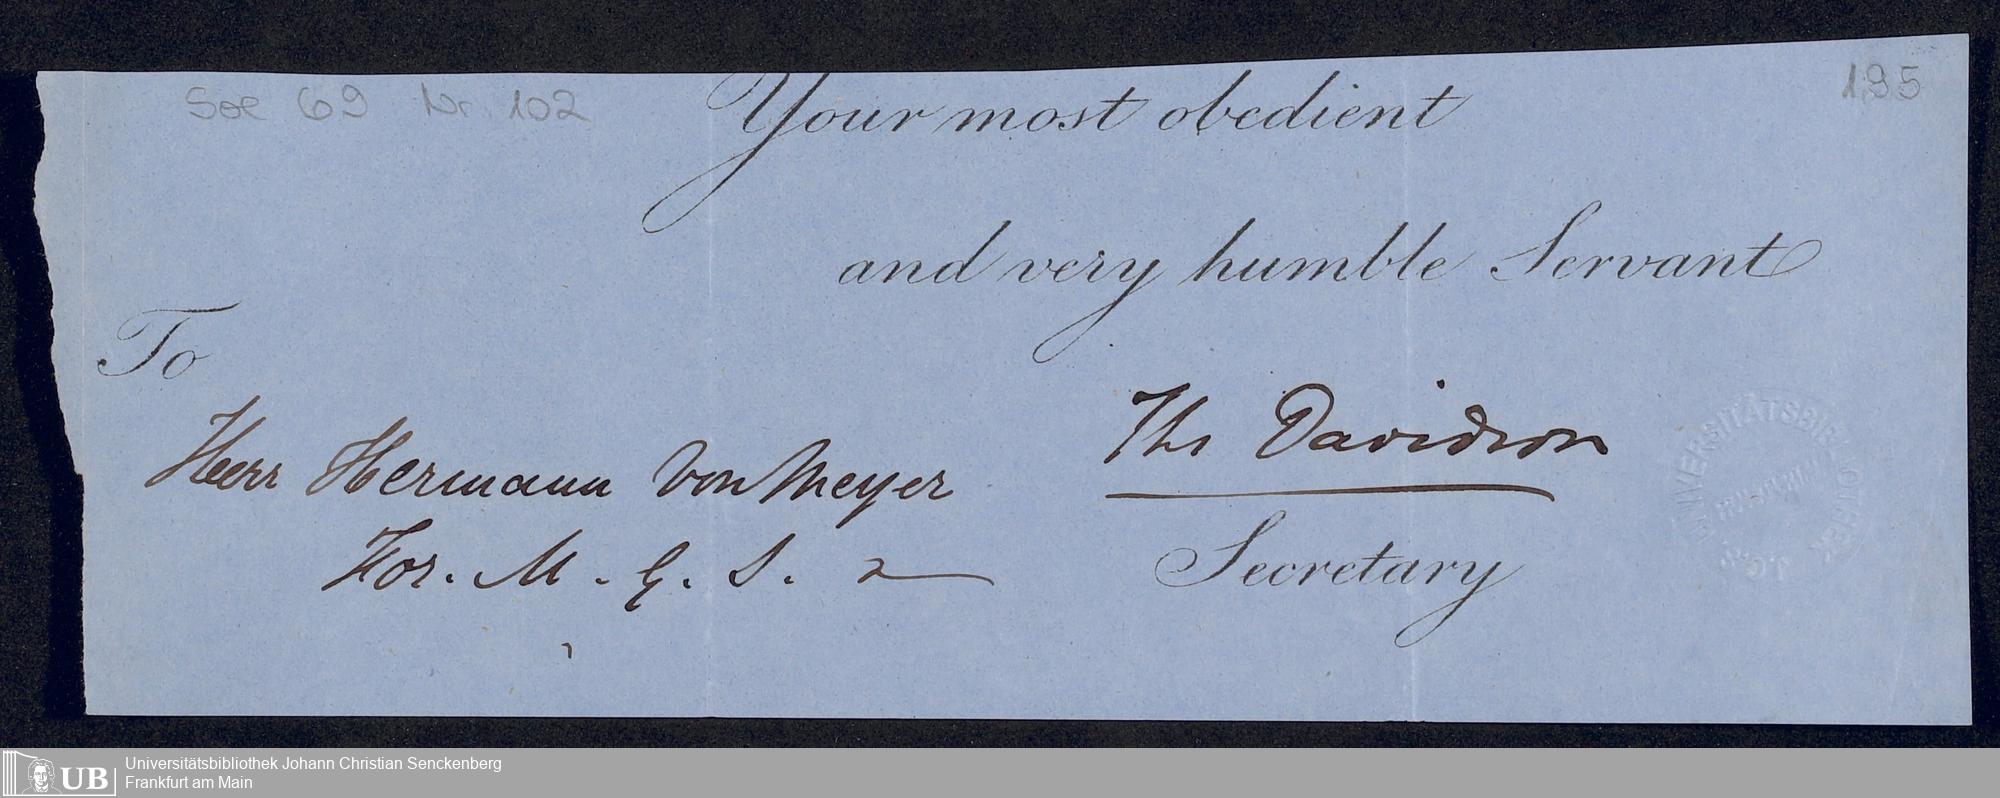 Soe 69 Nr. 102
195
Your most obedient
and very humble Servant
To
Ths Davidson
Herr Hermann von Meyer
For. M. G. S.
Secretary
UNIVERSITÄTSBIBLIOTHEK
J.C.S.
UB
Universitätsbibliothek Johann Christian Senckenberg
Frankfurt am Main